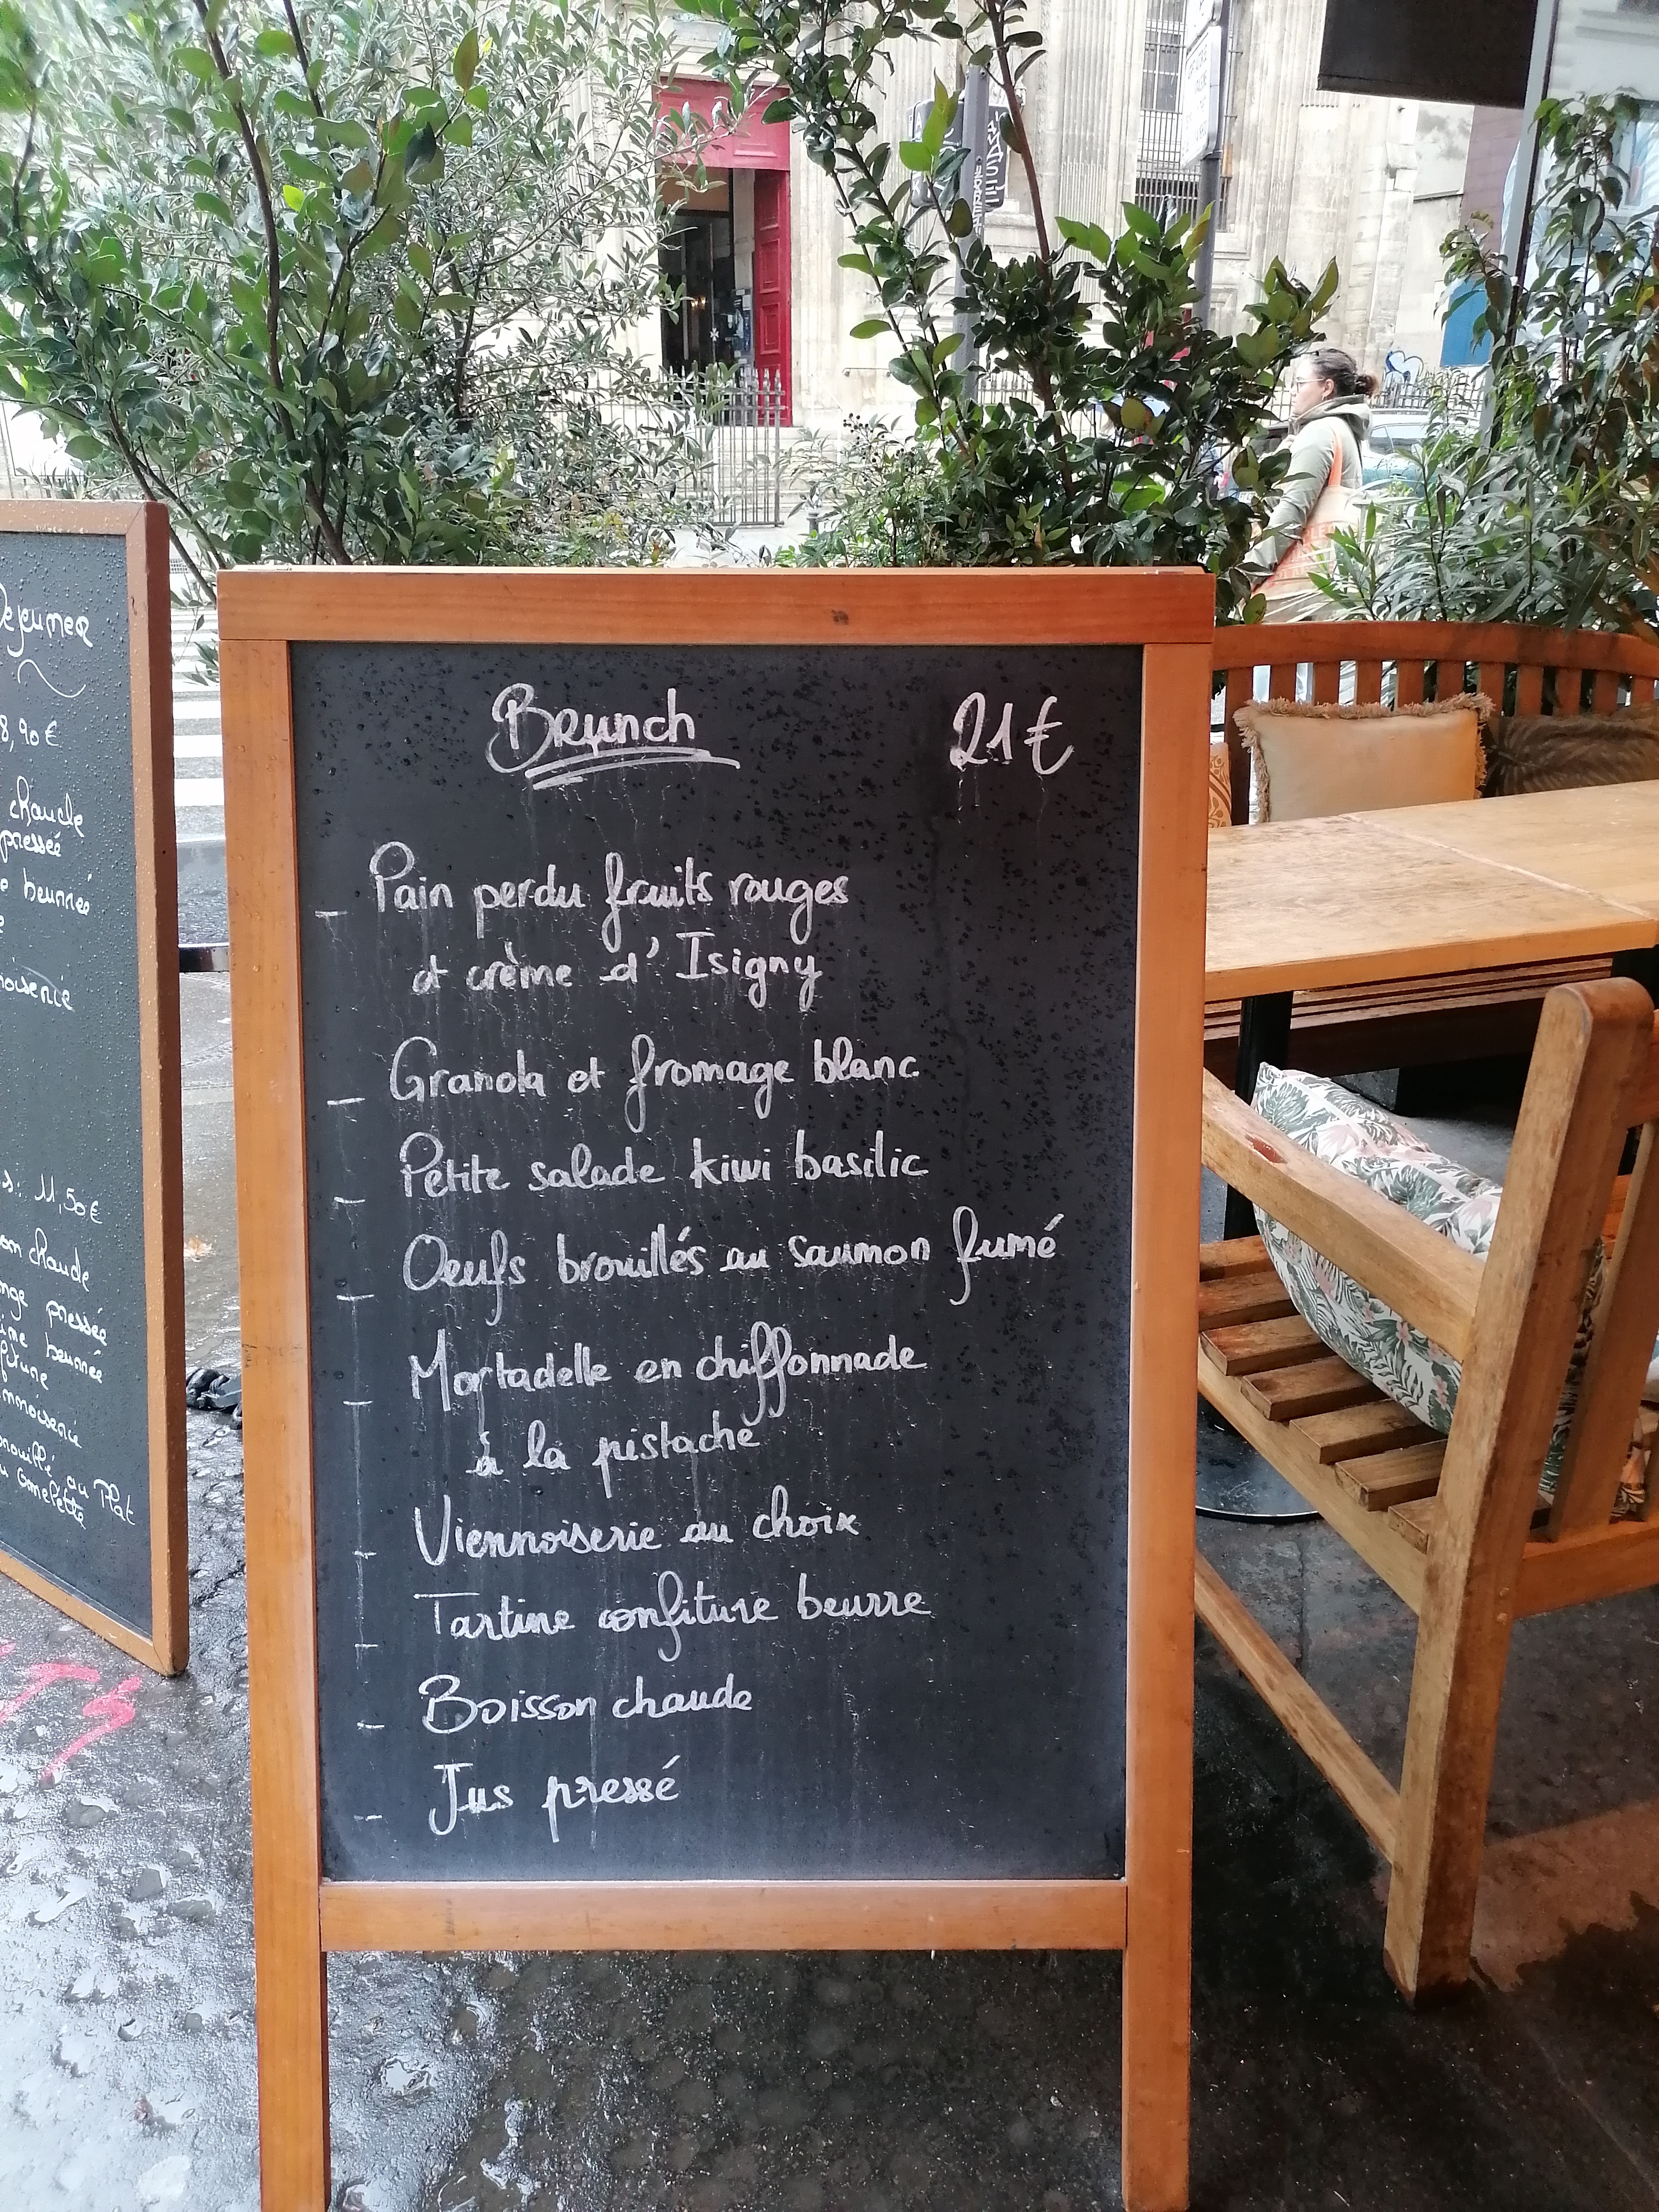 Dejeuner
8,90 €
chaude
pressée
beurrée
11,50 €
chaude
pressée
beurrée
au Plat
omelette
Brunch 21€
_ Pain perdu fruits rouges
et crème d'Isigny
_ Granola et fromage blanc
_ Petite salade kiwi basilic
_ Oeufs brouillés au saumon fumé
_ Mortadelle en chiffonnade
à la pistache
_ Viennoiserie au choix
_ Tartine confiture beurre
_ Boisson chaude
_ Jus pressé